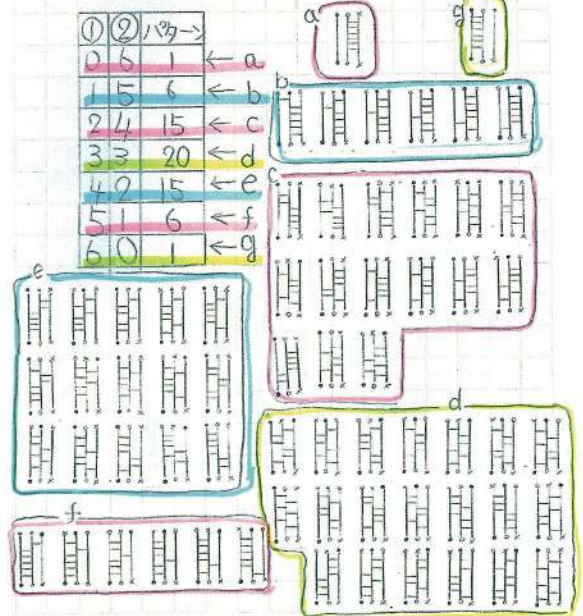 ① ② パターン
0 6 1 ← a
1 5 6 ← b
2 4 15 ← c
3 3 20 ← d
4 2 15 ← e
5 1 6 ← f
6 0 1 ← g
a
g
b
c
e
d
f